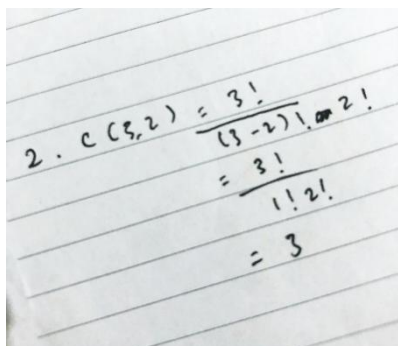 2. C(3,2) = 3!
(3-2)! 2!
= 3!
1! 2!
= 3